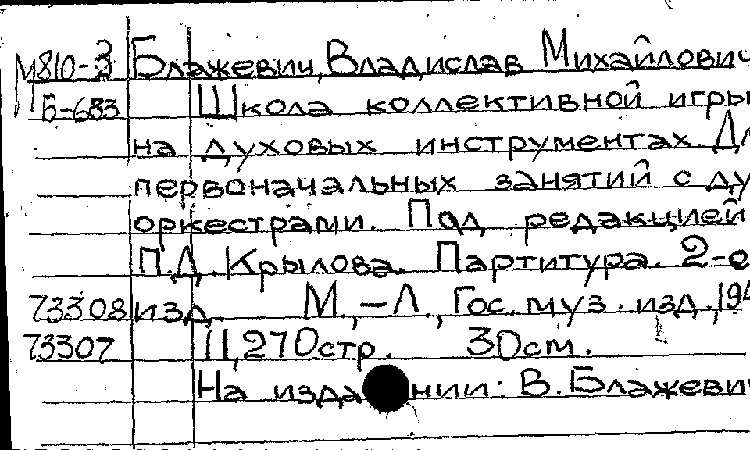 М810-3 Блажевич, Владислав Михайлович
Б-683 Школа коллективной игры
на духовых инструментах. Дл
первоначальных занятий с ду
оркестрами. Под редакцией
П.Д. Крылова. Партитура. 2-е
73308 изд. М.,-Л., Гос. муз. изд., 194
73307 II, 270 стр. 30 см.
На издании: В. Блажевич